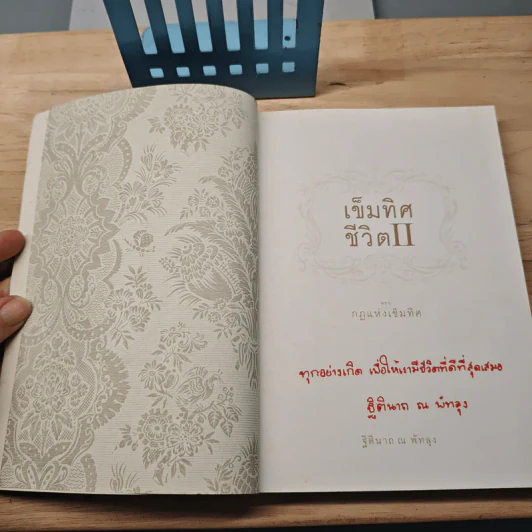 เข็มทิศ
ชีวิต II
ตอน
กฎแห่งเข็มทิศ
ทุกอย่างเกิด เพื่อให้เรามีชีวิตที่ดีที่สุดเสมอ
ฐิตินาถ ณ พัทลุง
ฐิตินาถ ณ พัทลุง